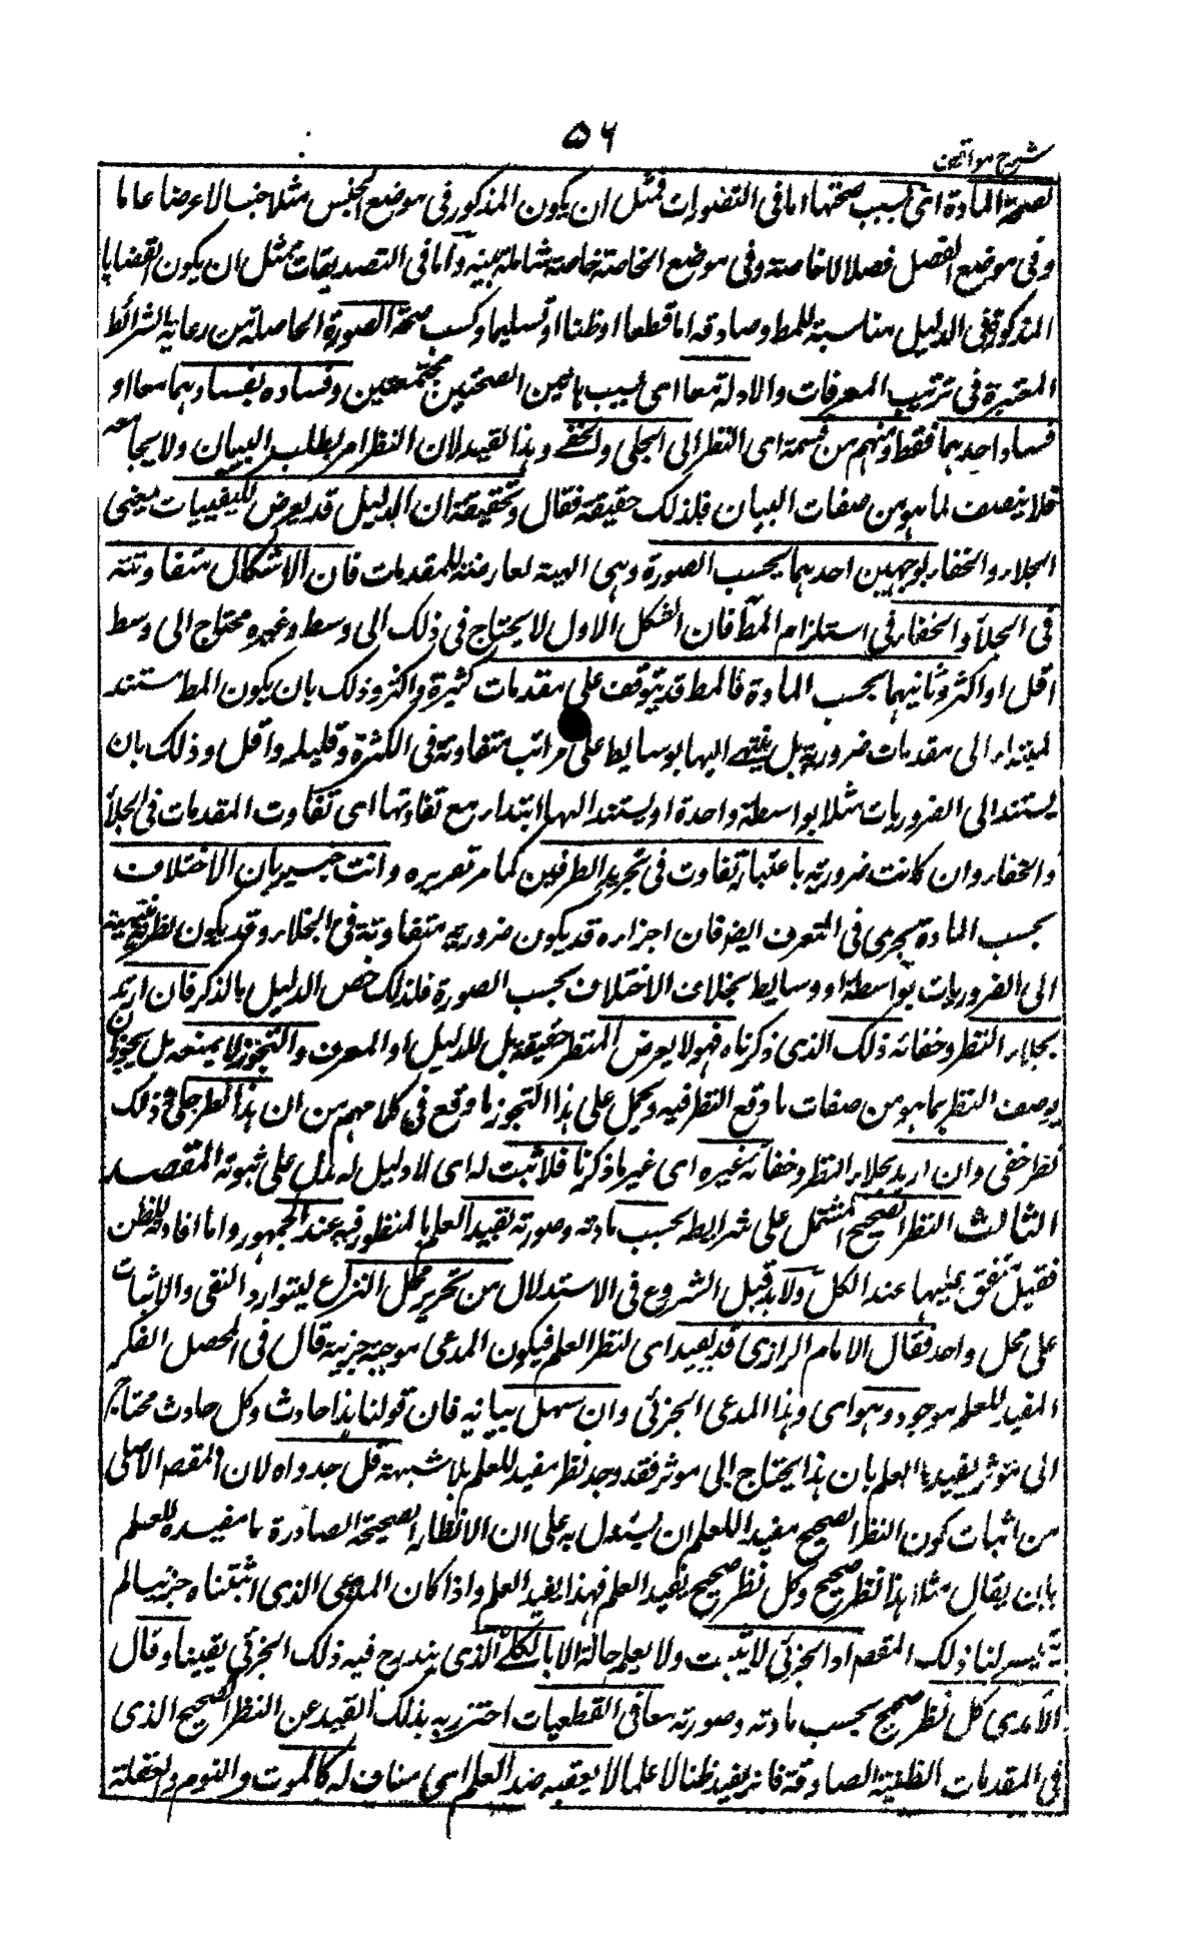 ۵۶
شرح مواقف
لصحة المادة اى بسبب صحتها اما فى التصورات فمثل ان يكون المذكور فى موضع الجنس مثلا جنسا لا عرضا عاما
وفى موضع الفصل فصلا لا خاصة وفى موضع الخاصة خاصة شاملة بينة واما فى التصديقات فمثل ان يكون القضايا
المذكورة فى الدليل مناسبة للمط وصادقة اما قطعا او ظنا او تسليما وكسب صحة الصورة الحاصلة من رعاية الشرائط
المعتبرة فى ترتيب المعرفات والادلة معا اى بسبب هاتين الصحتين مجتمعتين وفساده بفسادهما معا او
فساد احدهما فقط ومنهم من قسمه اى النظر الى الجلى والخفى وهذا بعيد لان النظر امر يطلب البيان ولا يجامعه
فلا يتصف لما هو من صفات البيان فلذلك حقيقه فقال وتحقيقه ان الدليل قد يعرض لكيفيات يعنى
الجلاء والخفاء لوجهين احدهما بحسب الصورة وهى الهيئة العارضة للمقدمات فان الاشكال متفاوتة
فى الجلاء والخفاء فى استلزام المط فان الشكل الاول لا يحتاج فى ذلك الى وسط وغيره محتاج الى وسط
اقل او اكثر وثانيهما بحسب المادة فالمط قد يتوقف على مقدمات كثيرة واكثر وذلك بان يكون المط مستند
لمبتداء الى مقدمات ضرورية بل ينتهى اليها بوسايط على مراتب متفاوتة فى الكثرة وقليلة واقل وذلك بان
يستند الى الضروريات مثلا بواسطة واحدة او يستند اليها ابتداء مع تفاوتها اى تفاوت المقدمات فى الجلاء
والخفاء وان كانت ضرورية باعتبار تفاوت فى تجريد الطرفين كما مر تقريره وانت خبير بان الاختلاف
بحسب المادة يجرى فى المعرف ايضا فان اجزاءه قد يكون ضرورية متفاوتة فى الجلاء وقد يكون نظرية منتهية
الى الضروريات بواسطة او وسايط بخلاف الاختلاف بحسب الصورة فلذلك خص الدليل بالذكر فان اريد
بجلاء النظر وخفائه ذلك الذى ذكرناه فهو لا يعرض للنظر حقيقة بل للدليل او المعرف والتجوز لا يمنعه بل يجوز ان
يوصف النظر بما هو من صفات ما وقع النظر فيه ويحمل على هذا التجوز ما وقع فى كلامهم من ان هذا نظر جلى وذلك
نظر خفى وان اريد بجلاء النظر وخفائه غيره اى غير ما ذكرنا فلا ثبت له اى لا دليل له يدل على ثبوته المقصد
الثالث النظر الصحيح المشتمل على شرايطه بحسب مادته وصورته يفيد العلم بالمنظور فيه عند الجمهور واما افادته للظن
فقيل متفق عليها عند الكل ولا بد قبل الشروع فى الاستدلال من تحرير محل النزاع ليتوارد النفى والاثبات
على محل واحد فقال الامام الرازى قد يفيد اى النظر العلم فيكون المدعى موجبة جزئية قال فى المحصل الفكر
المفيد للعلم موجود وهو اى وهذا المدعى الجزئى وان سهل بيانه فان قولنا هذا حادث وكل حادث محتاج
الى مؤثر يفيدنا العلم بان هذا يحتاج الى موثر فقد وجد نظر مفيد للعلم بلا شبهة قل جدواه لان المقصد الاصلى
من اثبات كون النظر الصحيح مفيدا للعلم ان يستدل به على ان الانظار الصحيحة الصادرة منا مفيدة للعلم
بان يقال مثلا هذا نظر صحيح وكل نظر صحيح يفيد العلم فهذا يفيد العلم واذا كان المدعى الذى اثبتناه جزئيا لم
يتيسر لنا ذلك المقصد اذ الجزئى لا يثبت ولا يعلم حاله الا بالكلى الذى يندرج فيه ذلك الجزئى يقينا وقال
الآمدى كل نظر صحيح بحسب مادته وصورته معا فى القطعيات احترز به بذلك القيد عن النظر الصحيح الذى
فى المقدمات الظنية الصادقة فانه يفيد ظنا لا علما لا يعقبه ضد العلم اى مناف له كالموت والنوم والغفلة